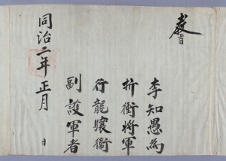 教旨
李知愚為
折衝將軍
行龍驤衛
副護軍者
同治二年正月 日